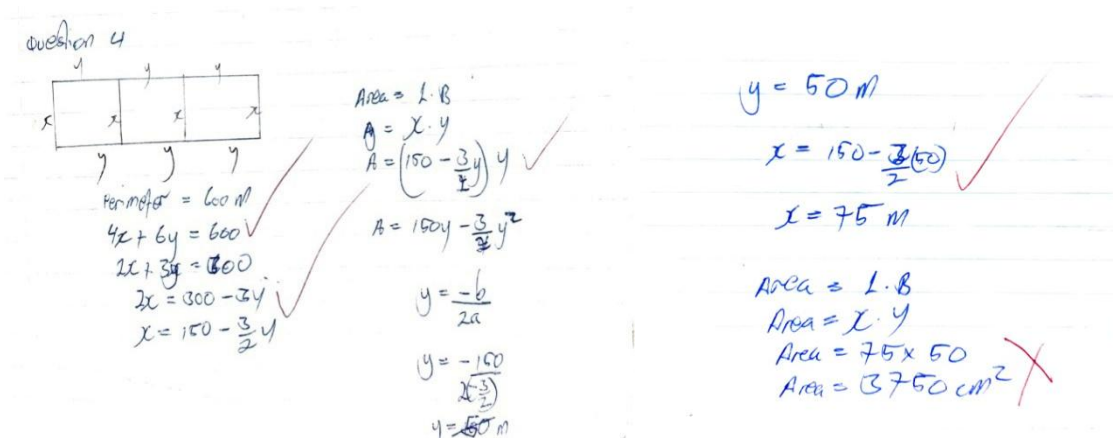 Question 4
y y y
x x x x
y y y
Perimeter = 600 m
4x + 6y = 600
2x + 3y = 300
2x = 300 - 3y
x = 150 - 3/2 y
Area = L.B
A = x.y
A = (150 - 3/2 y) y
A = 150y - 3/2 y²
y = -b/2a
y = -150/2(-3/2)
y = 50 m
y = 50 m
x = 150 - 3/2 (50)
x = 75 m
Area = L.B
Area = x.y
Area = 75 x 50
Area = 3750 cm²